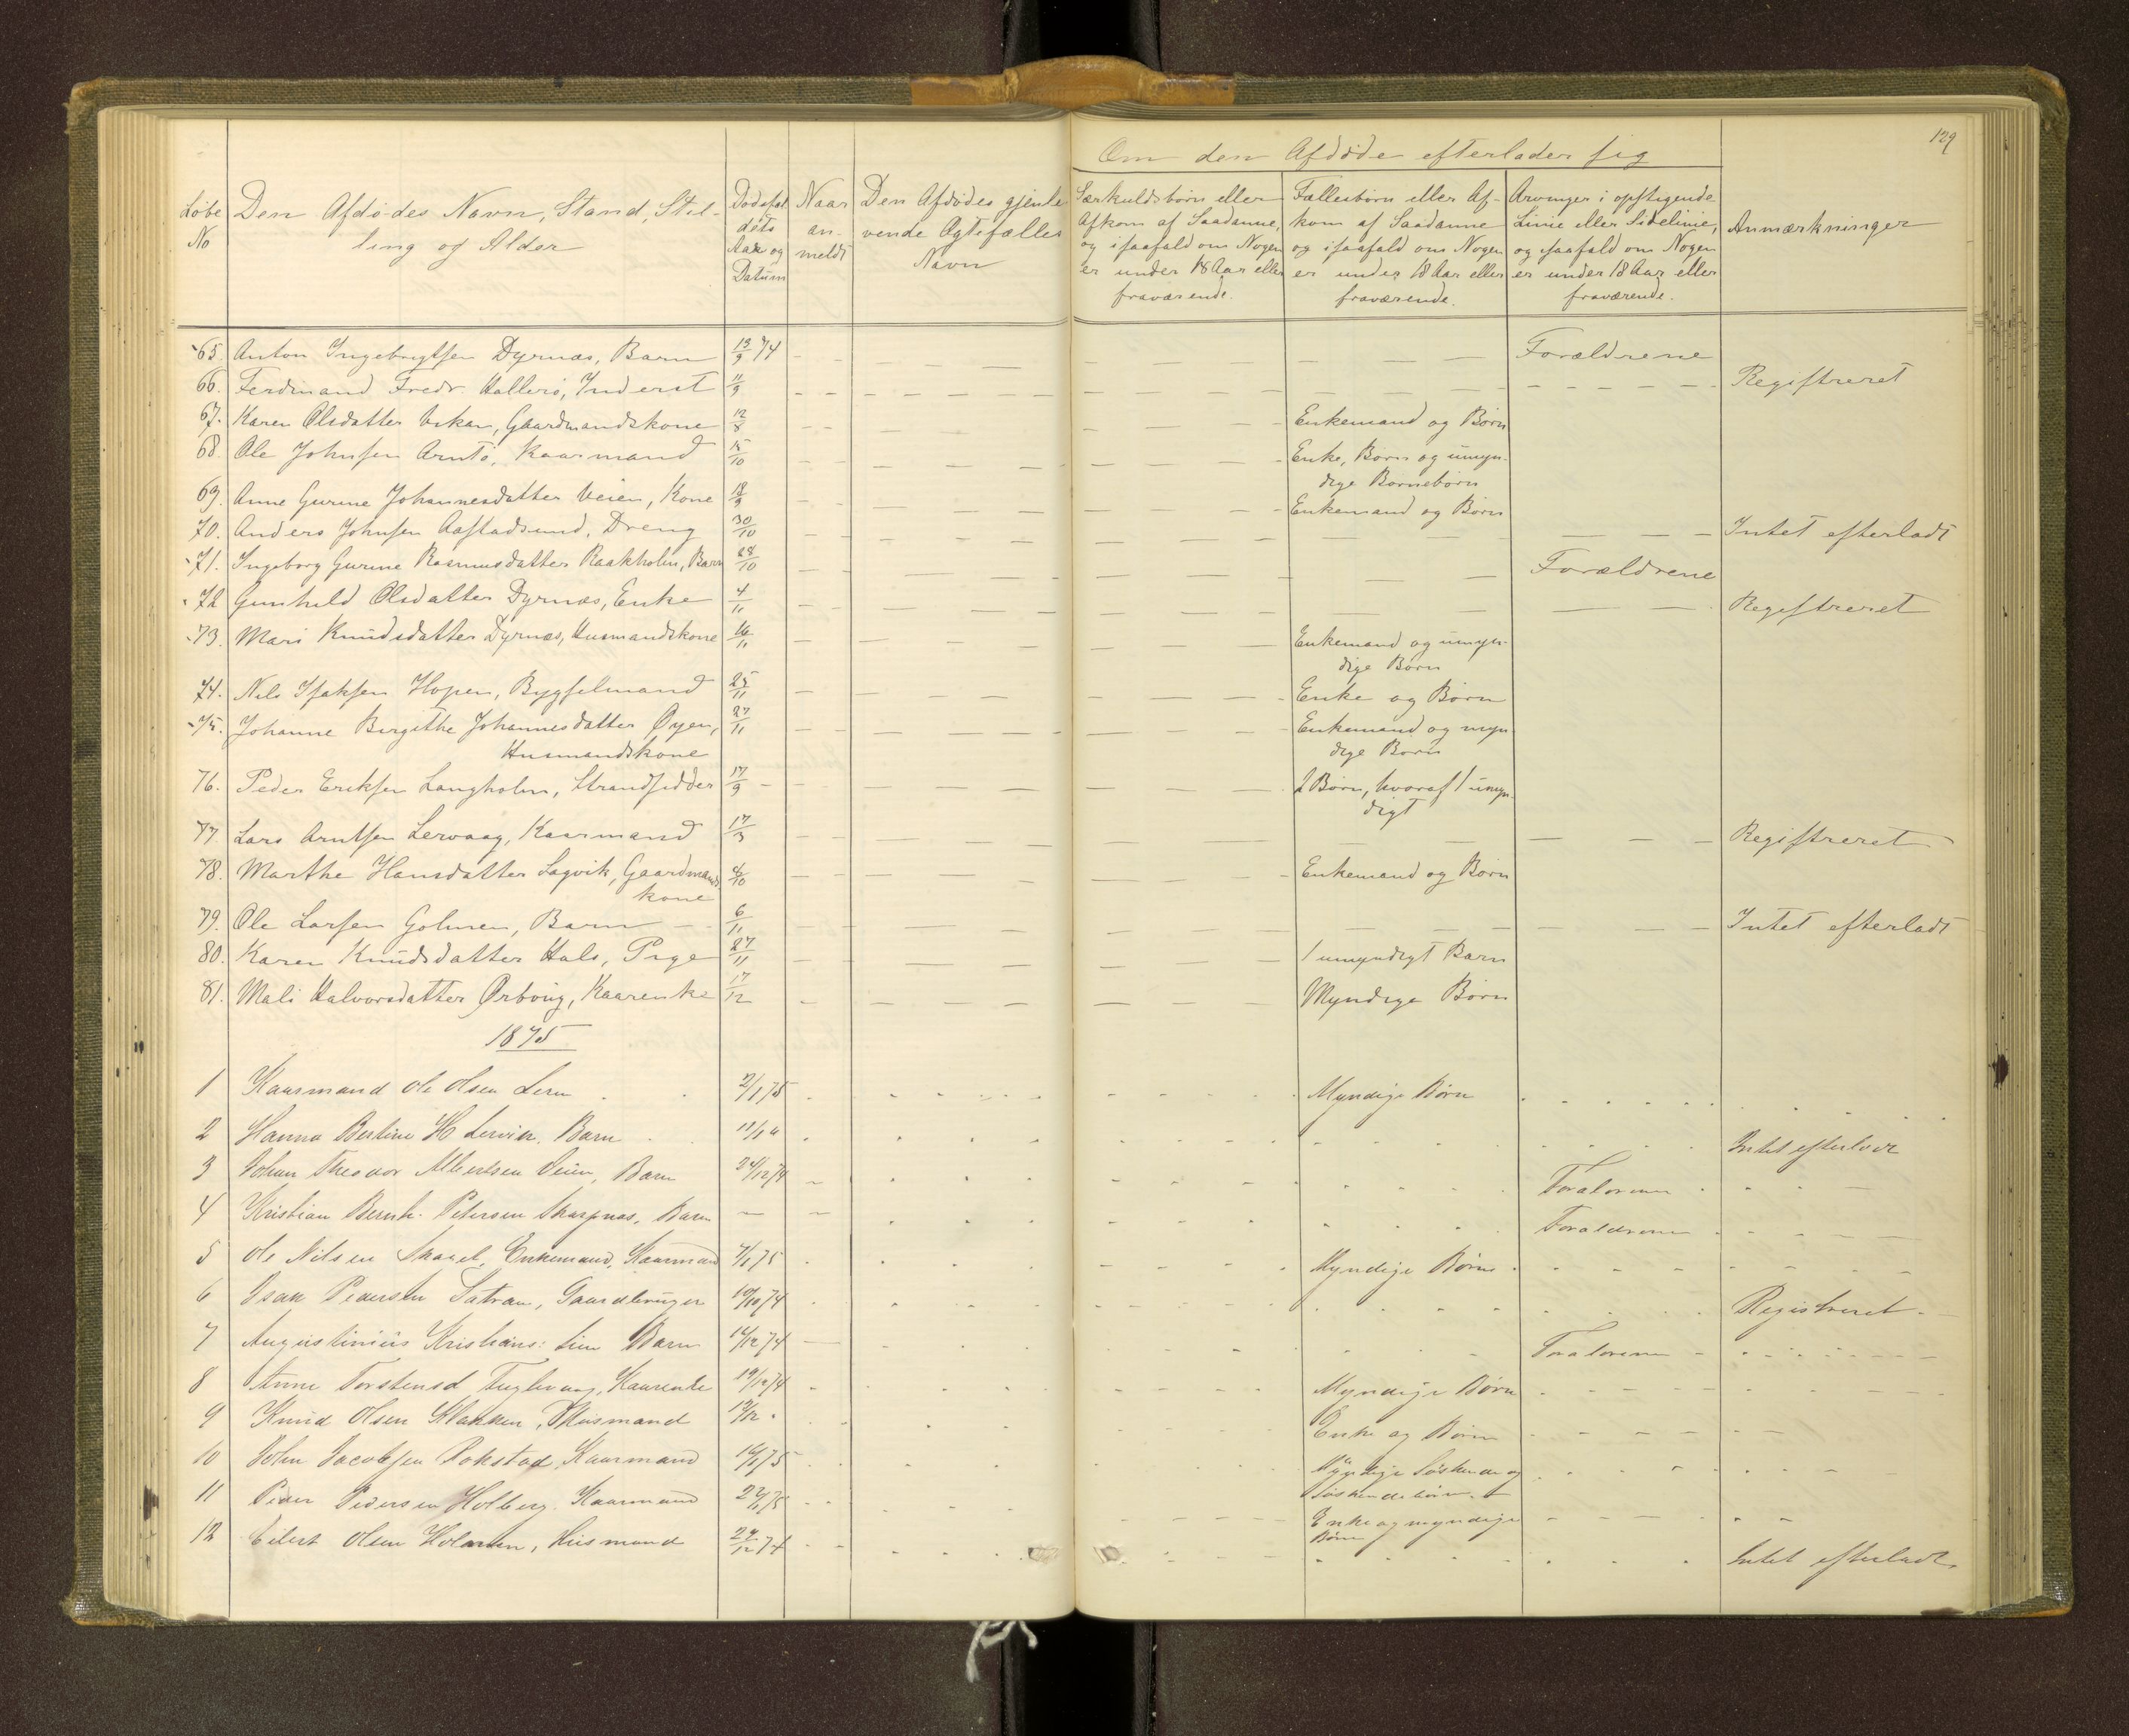 129
Om den Afdøde efterlader sig
Løbe No | Den Afdødes Navn, Stand, Stilling og Alder | Dødsfaldets Aar og Datum | Naar anmeldt | Den Afdødes gjenlevende Ægtefælles Navn | Særkuldsbørn eller Afkom af Saadanne, og isaafald om Nogen er under 18 Aar eller fraværende. | Fællesbørn eller Afkom af Saadanne og isaafald om Nogen er under 18 Aar eller fraværende. | Arvinger i opstigende Linie eller Sidelinie, og isaafald om Nogen er under 18 Aar eller fraværende. | Anmærkninger
65. Anton Ingebrigtsen Dyrnæs, Barn 13/9 74 Forældrene
66. Ferdinand Fredr. Hallerø, Inderst 11/9 Registreret
67. Karen Olsdatter, Gaardmandskone 12/8 Enkemand og Børn
68. Ole Johnsen Arntø, Kaarmand 15/10 Enke, Børn og umyn-
dige Børnebørn
69. Anne Gurine Johannesdatter Veien, Kone 18/9 Enkemand og Børn
70. Anders Johnsen Aastadsund, Dreng 30/10 Intet efterladt
71. Ingeborg Gurine Rasmusdatter Raakholm, Barn 28/10 Forældrene
72 Gunhild Olsdatter Dyrnæs, Enke 4/11 Registreret
73. Mari Knudsdatter Dyrnæs, Husmandskone 16/11 Enkemand og umyn-
dige Børn
74. Nils Isaksen Hopen, Bygselmand 25/11 Enke og Børn
75. Johanne Birgithe Johannesdatter Øyen, 27/11 Enkemand og myn-
Husmandskone dige Børn
76. Peder Eriksen Langholm, Strandsidder 17/9 2 Børn, hvoraf 1 umyn-
digt
77. Lars Arntsen Lervaag, Kaarmand 17/3 Registreret
78. Marthe Hansdatter Lagvik, Gaardmands 6/10 Enkemand og Børn
kone
79. Ole Larsen Golmen, Barn 6/11 Intet efterladt
80. Karen Knudsdatter Hals, Pige 27/11 1 umyndigt Barn
81. Mali Halvorsdatter Ørbøug, Kaarenke 17/12 Myndige Børn
1875
1 Kaarmand Ole Olsen Lerm 2/1 75 Myndige Børn
2 Hanna Bertine H Lervik, Barn 11/1 Intet efterladt
3 Johan Theodor Albertsen, Barn 24/12 74 Forældrene
4 Kristian Bernh. Petersen Skarpnæs, Barn Forældrene
5 Ole Nilsen, Enkemand, Kaarmand 7/1 75 Myndige Børn
6 Isak Pedersen Sætran, Gaardbruger 10/10 74 Registreret
7 Augustinius Kristians: Barn 14/12 74 Forældrene
8 Anne Torstensd Fuglevaag, Kaarenke 19/12 74 Myndige Børn
9 Knud Olsen Klakken, Husmand 19/12 Enke og Børn
10 John Jacobsen Rokstad, Kaarmand 16/1 75 Myndige Søskende og
Søskendebørn
11 Peder Pedersen Holberg, Kaarmand 22/1 75 Enke og myndige
Børn
12 Eilert Olsen Holmen, Husmand 24/12 74 Intet efterladt